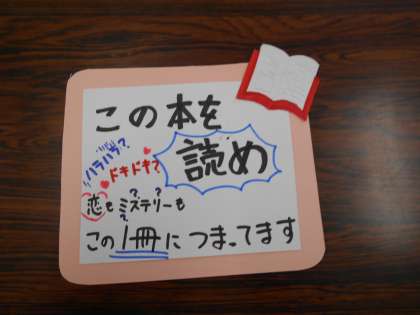 この本を
読め
ハラハラ?
ドキドキ?
恋もミステリーも
この1冊につまってます